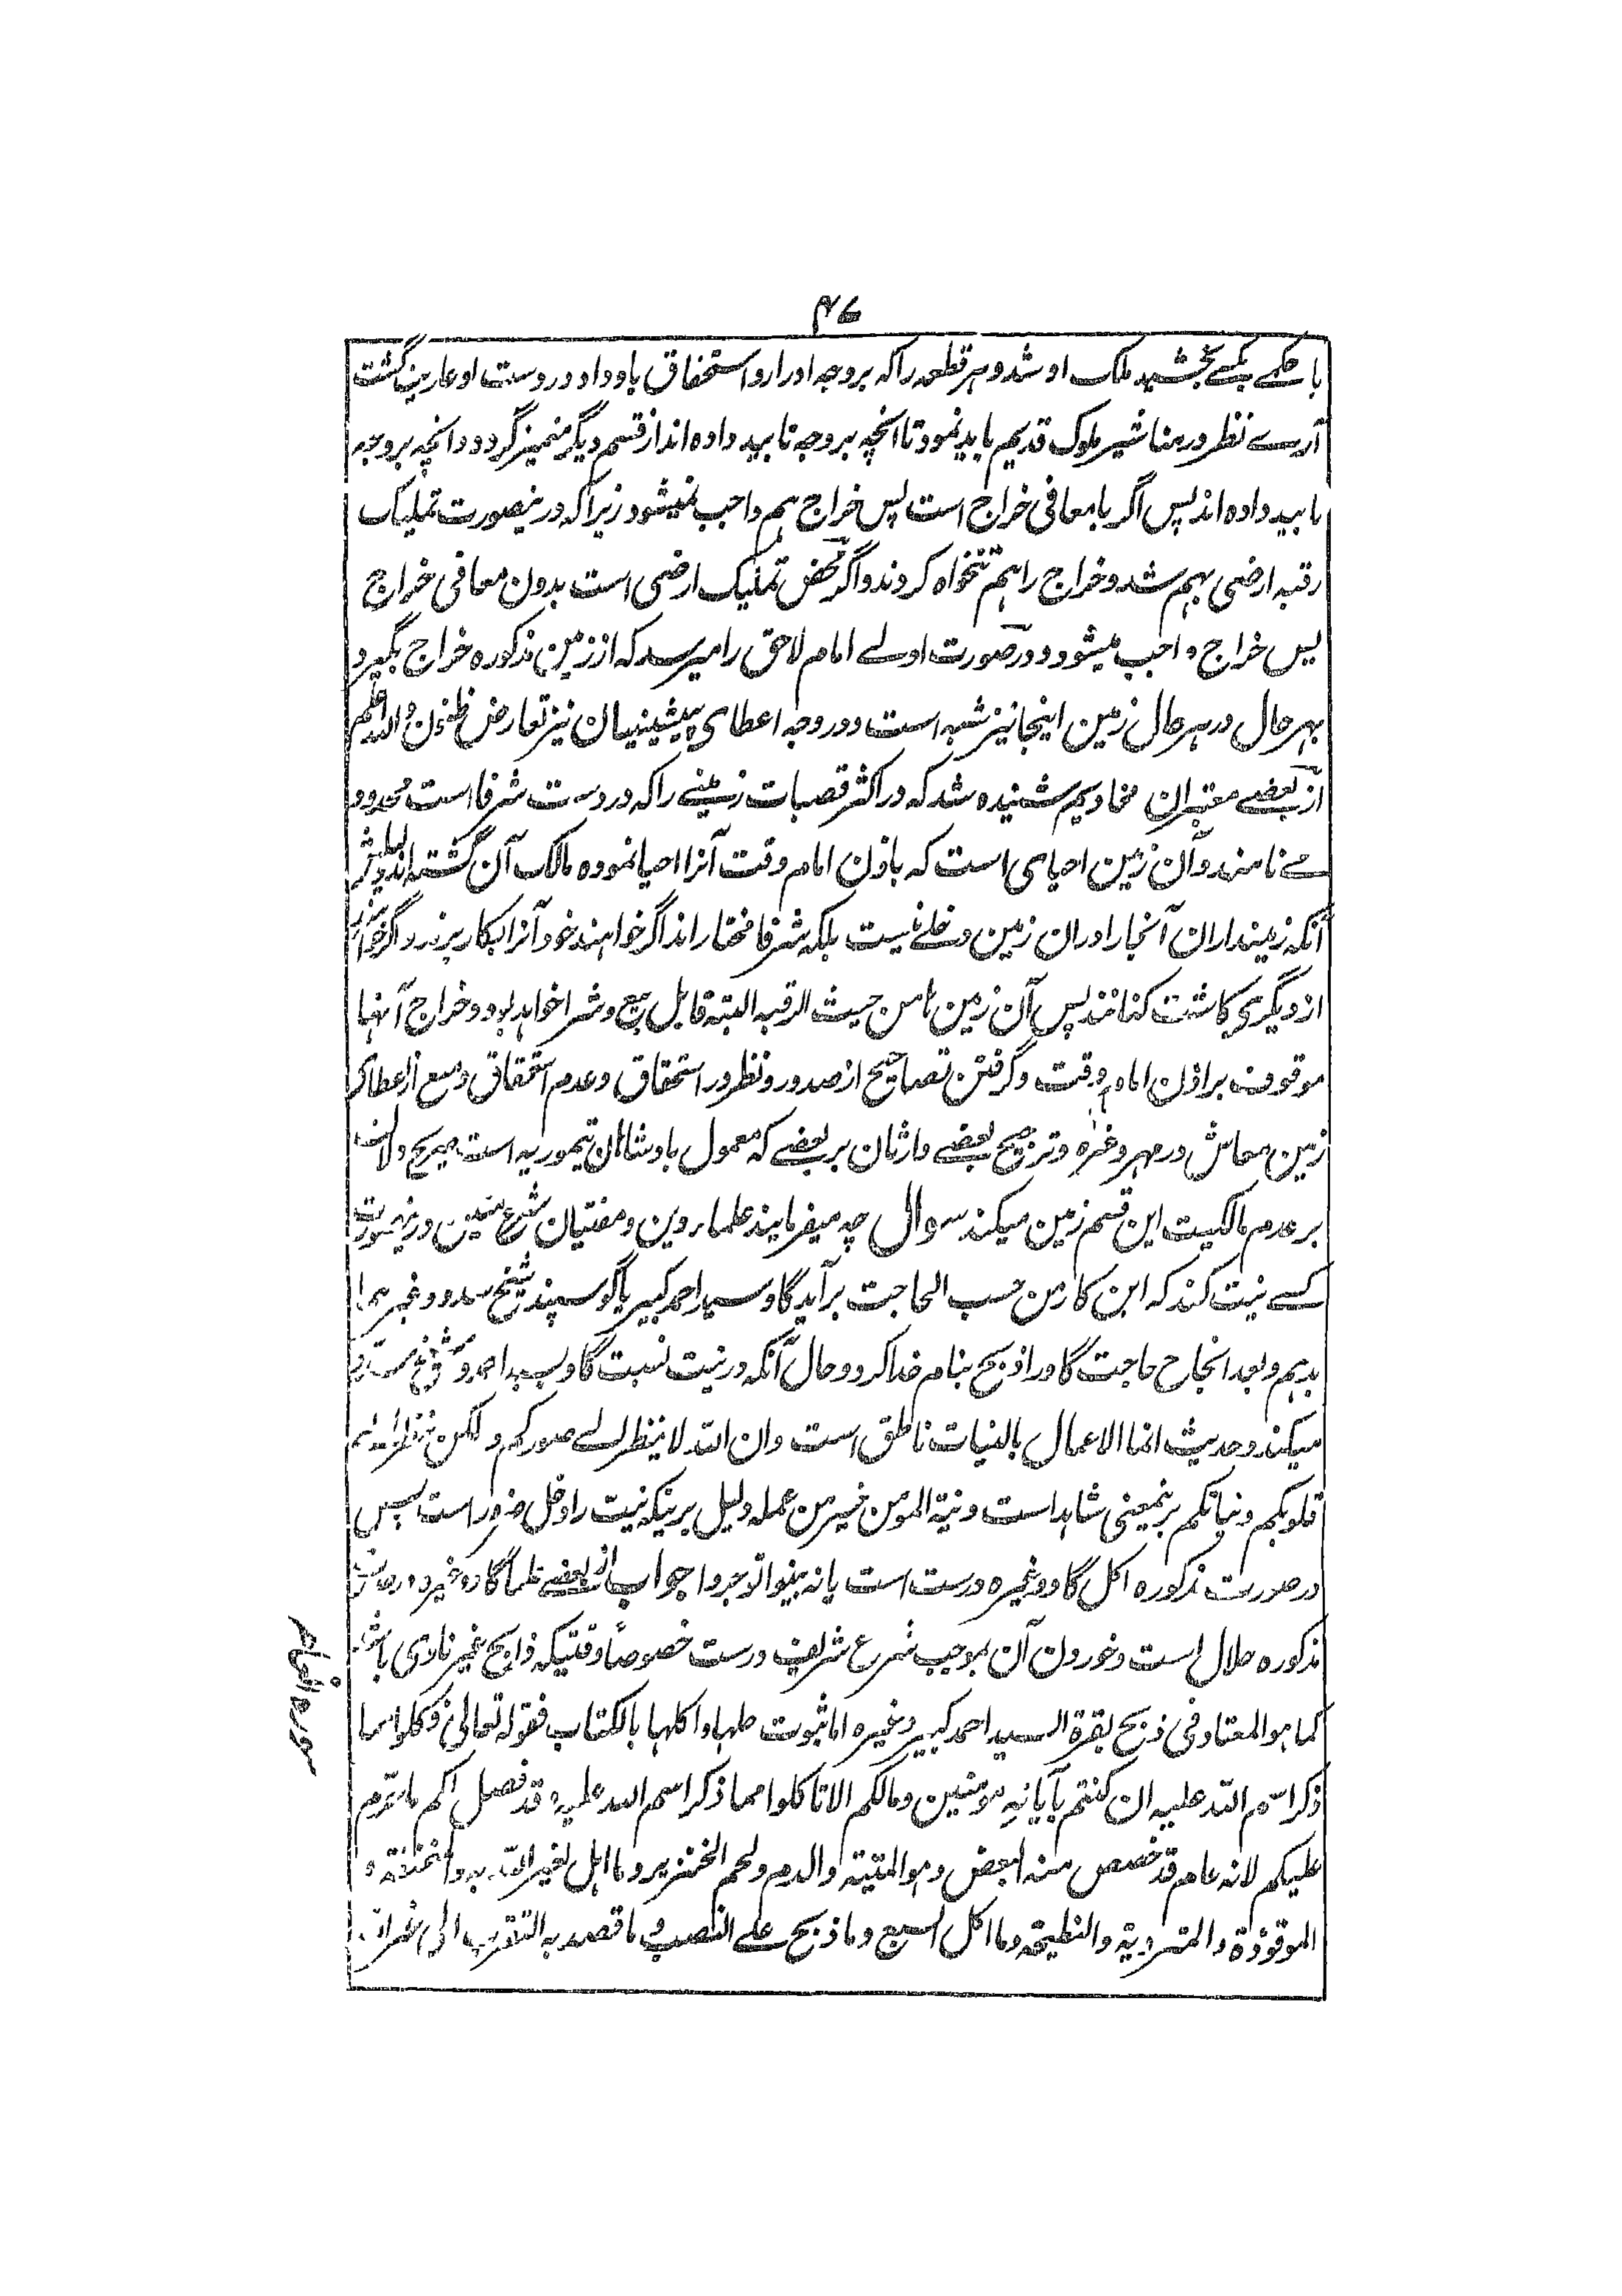 ۴۷
با حکمے بکسے بخشید ملک او شد و ہر قطعہ را کہ بر وجہ ادرار و استحقاق باو داد در دست او عاریت گشت
آرے نظر در مناشیر ملوک قدیم باید نمود تا انچہ بر وجہ تابید دادہ اند از قسم دیگر متمیز گردد و انچہ بر وجہ
تابید دادہ اند پس اگر با معافی خراج است پس خراج ہم واجب نمیشود زیرا کہ درینصورت تملیک
رقبہ ارضی بہم شد و خراج را ہم تنخواہ کردند و اگر محض تملیک ارضی است بدون معافی خراج
پس خراج واجب میشود و در صورت اولے امام لاحق را میرسد کہ از زمین مذکورہ خراج بگیرد
بہر حال در ہر حال زمین اینجا نیز شبہ است و در وجہ اعطای پیشینیان نیز تعارض ظنون واللہ اعلم
از بعضے معتبران مخادیم شنیدہ شد کہ در اکثر قصبات زمینے را کہ در دست شرفا است محدود
مے نامند و آن زمین احیای است کہ باذن امام وقت آنرا احیا نمودہ مالک آن گشتہ اند
آنکہ زمینداران آنجا را در ان زمین دخلے نیست بلکہ شرفا مختار اند اگر خواہند خود آنرا بکار برند و اگر خواہند
از دیگری کاشت کنانند پس آن زمین با من حیث الرقبہ البتہ قابل بیع و شرا خواہد بود و خراج آنہا
موقوف بر اذن امام وقت و گرفتن تصاحیح از صدور و نظر در استحقاق و عدم استحقاق و منع از اعطای
زمین معاش در مہر و غیرہ و ترجیح بعضے وارثان بر بعضے کہ معمول بادشاہان تیموریہ است صریح دلالت
بر عدم مالکیت این قسم زمین میکند سوال چہ میفرمایند علماء دین و مفتیان شرع متین درینصورت
کسے نیت کند کہ این کار من حسب الحاجت برآید گاو سید احمد کبیر یا گوسپند شیخ سدو و غیرہما
بدہم و بعد انجاح حاجت گاو را ذبح بنام خدا کرد و حال آنکہ در نیت نسبت گاو بسید احمد و
میکند و حدیث انما الاعمال بالنیات ناطق است و ان اللہ لا ینظر الے صورکم و لکن ینظر الے
قلوبکم و نیاتکم برینمعنی شاہد است و نیة المومن خیر من عملہ دلیل برینکہ نیت را دخل ضرور است پس
در صورت مذکورہ اکل گاو وغیرہ درست است یا نہ بینوا توجروا جواب از بعضے علما گاو وغیرہ در صورت
مذکورہ حلال است و خوردن آن بموجب شرع شریف درست خصوصاً وقتیکہ ذابح غیر ناذر باشد
کما ہو المعتاد فی ذبح بقرة السید احمد کبیر وغیرہ اما ثبوت حلہا و اکلہا بالکتاب فقولہ تعالیٰ فکلوا مما
ذکر اسم اللہ علیہ ان کنتم بآیاتہ مومنین و مالکم الا تاکلوا مما ذکر اسم اللہ علیہ و قد فصل لکم ما حرم
علیکم لانہ عام قد خصص منہ البعض و ہو المیتة والدم و لحم الخنزیر و ما اہل لغیر اللہ بہ والمنخنقة و
الموقوذة والمتردیة والنطیحة و ما اکل السبع و ما ذبح علے النصب و ما قصد بہ التقرب الی غیر اللہ
سورہ انعام